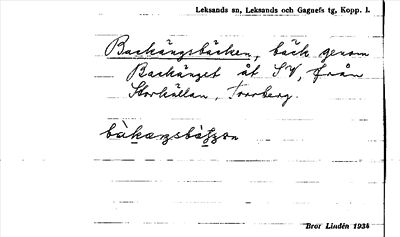 Leksands sn, Leksands och Gagnefs tg, Kopp. l.
Backängsbäcken, bäck genom
Backänget åt SV, från
Storkällan, Torrberg.
Bror Lindén 1934